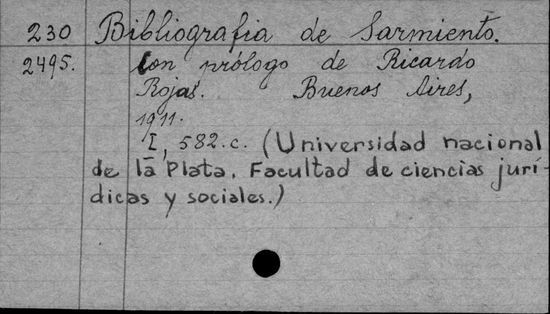 230 Bibliografia de Sarmiento.
2495. Con prólogo de Ricardo
Rojas. Buenos Aires,
1911.
I, 582.c. (Universidad nacional
de la Plata. Facultad de ciencias jurí-
dicas y sociales.)